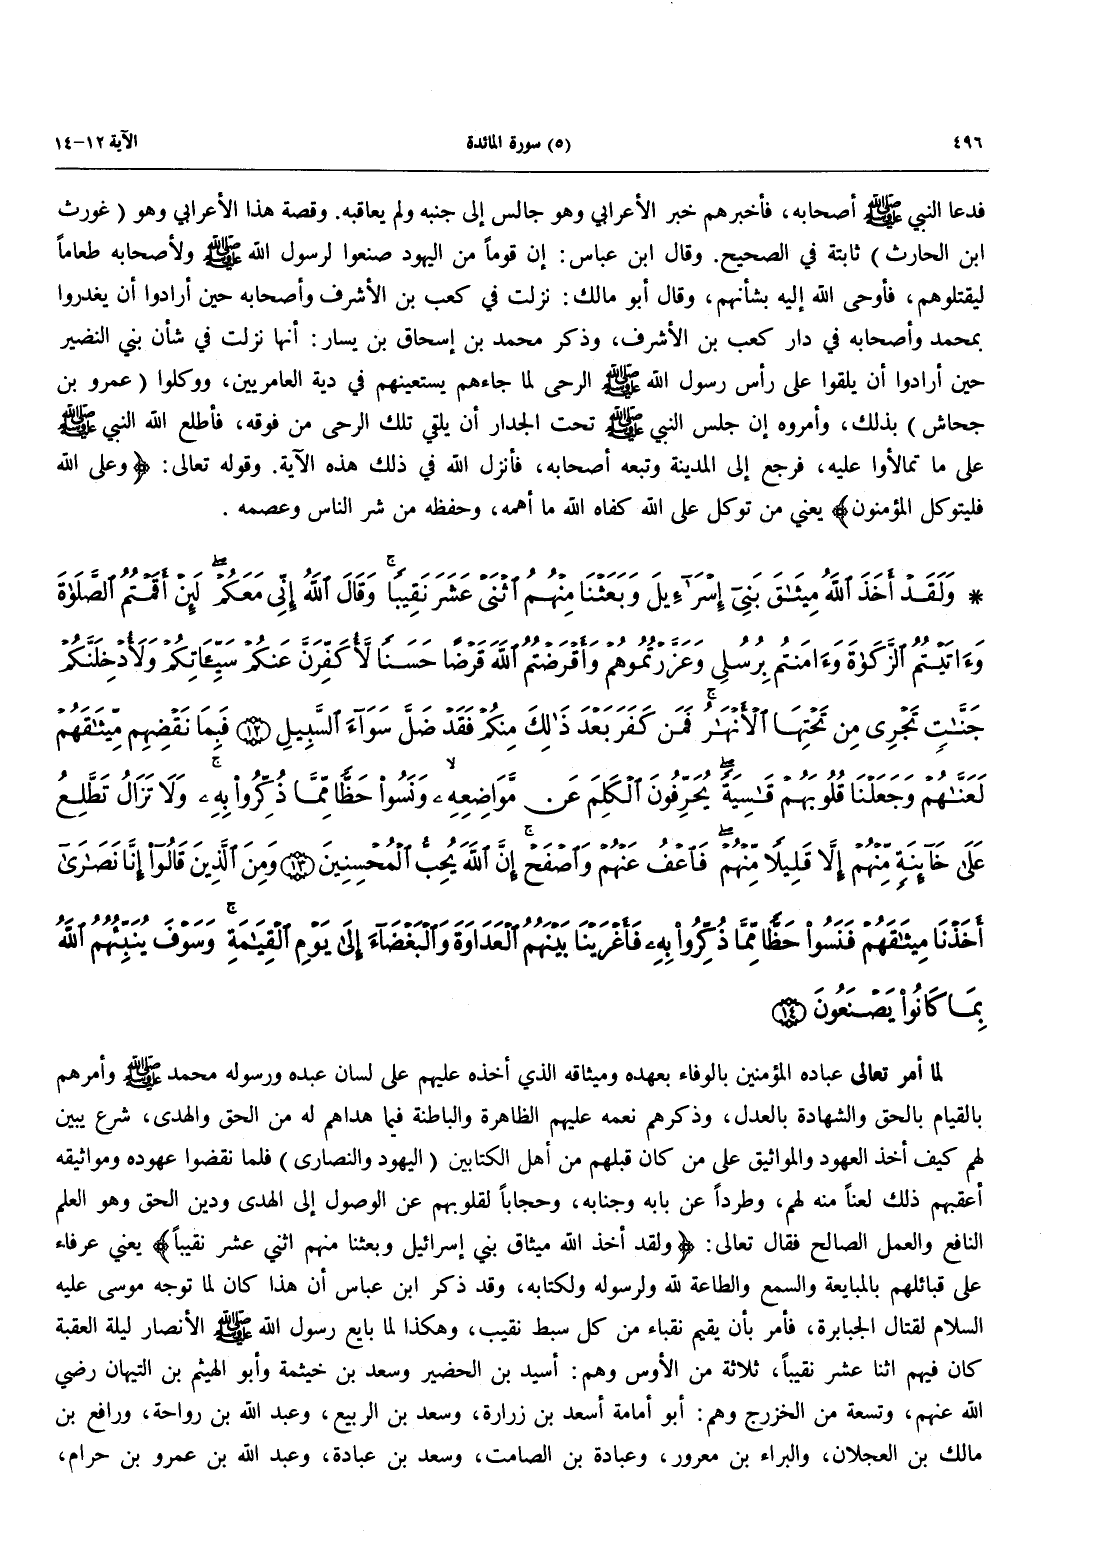 ٤٩٦ (٥) سورة المائدة الآية ١٢–١٤
فدعا النبي ﷺ أصحابه، فأخبرهم خبر الأعرابي وهو جالس إلى جنبه ولم يعاقبه. وقصة هذا الأعرابي وهو ( غورث
ابن الحارث ) ثابتة في الصحيح. وقال ابن عباس: إن قوماً من اليهود صنعوا لرسول الله ﷺ ولأصحابه طعاماً
ليقتلوهم، فأوحى الله إليه بشأنهم، وقال أبو مالك: نزلت في كعب بن الأشرف وأصحابه حين أرادوا أن يغدروا
بمحمد وأصحابه في دار كعب بن الأشرف، وذكر محمد بن إسحاق بن يسار: أنها نزلت في شأن بني النضير
حين أرادوا أن يلقوا على رأس رسول الله ﷺ الرحى لما جاءهم يستعينهم في دية العامريين، ووكلوا ( عمرو بن
جحاش ) بذلك، وأمروه إن جلس النبي ﷺ تحت الجدار أن يلقي تلك الرحى من فوقه، فأطلع الله النبي ﷺ
على ما تمالأوا عليه، فرجع إلى المدينة وتبعه أصحابه، فأنزل الله في ذلك هذه الآية. وقوله تعالى: ﴿وعلى الله
فليتوكل المؤمنون﴾ يعني من توكل على الله كفاه الله ما أهمه، وحفظه من شر الناس وعصمه .
* وَلَقَدْ أَخَذَ ٱللَّهُ مِيثَٰقَ بَنِىٓ إِسْرَٰٓءِيلَ وَبَعَثْنَا مِنْهُمُ ٱثْنَىْ عَشَرَ نَقِيبًا ۚ وَقَالَ ٱللَّهُ إِنِّى مَعَكُمْ ۖ لَئِنْ أَقَمْتُمُ ٱلصَّلَوٰةَ
وَءَاتَيْتُمُ ٱلزَّكَوٰةَ وَءَامَنتُم بِرُسُلِى وَعَزَّرْتُمُوهُمْ وَأَقْرَضْتُمُ ٱللَّهَ قَرْضًا حَسَنًا لَّأُكَفِّرَنَّ عَنكُمْ سَيِّـَٔاتِكُمْ وَلَأُدْخِلَنَّكُمْ
جَنَّٰتٍ تَجْرِى مِن تَحْتِهَا ٱلْأَنْهَٰرُ ۚ فَمَن كَفَرَ بَعْدَ ذَٰلِكَ مِنكُمْ فَقَدْ ضَلَّ سَوَآءَ ٱلسَّبِيلِ ﴿١٢﴾ فَبِمَا نَقْضِهِم مِّيثَٰقَهُمْ
لَعَنَّٰهُمْ وَجَعَلْنَا قُلُوبَهُمْ قَٰسِيَةً ۖ يُحَرِّفُونَ ٱلْكَلِمَ عَن مَّوَاضِعِهِۦ ۙ وَنَسُوا۟ حَظًّا مِّمَّا ذُكِّرُوا۟ بِهِۦ ۚ وَلَا تَزَالُ تَطَّلِعُ
عَلَىٰ خَآئِنَةٍ مِّنْهُمْ إِلَّا قَلِيلًا مِّنْهُمْ ۖ فَٱعْفُ عَنْهُمْ وَٱصْفَحْ ۚ إِنَّ ٱللَّهَ يُحِبُّ ٱلْمُحْسِنِينَ ﴿١٣﴾ وَمِنَ ٱلَّذِينَ قَالُوٓا۟ إِنَّا نَصَٰرَىٰٓ
أَخَذْنَا مِيثَٰقَهُمْ فَنَسُوا۟ حَظًّا مِّمَّا ذُكِّرُوا۟ بِهِۦ فَأَغْرَيْنَا بَيْنَهُمُ ٱلْعَدَاوَةَ وَٱلْبَغْضَآءَ إِلَىٰ يَوْمِ ٱلْقِيَٰمَةِ ۚ وَسَوْفَ يُنَبِّئُهُمُ ٱللَّهُ
بِمَا كَانُوا۟ يَصْنَعُونَ ﴿١٤﴾
لما أمر تعالى عباده المؤمنين بالوفاء بعهده وميثاقه الذي أخذه عليهم على لسان عبده ورسوله محمد ﷺ وأمرهم
بالقيام بالحق والشهادة بالعدل، وذكرهم نعمه عليهم الظاهرة والباطنة فيما هداهم له من الحق والهدى، شرع يبين
لهم كيف أخذ العهود والمواثيق على من كان قبلهم من أهل الكتابين ( اليهود والنصارى ) فلما نقضوا عهوده ومواثيقه
أعقبهم ذلك لعناً منه لهم، وطرداً عن بابه وجنابه، وحجاباً لقلوبهم عن الوصول إلى الهدى ودين الحق وهو العلم
النافع والعمل الصالح فقال تعالى: ﴿ولقد أخذ الله ميثاق بني إسرائيل وبعثنا منهم اثني عشر نقيباً﴾ يعني عرفاء
على قبائلهم بالمبايعة والسمع والطاعة لله ولرسوله ولكتابه، وقد ذكر ابن عباس أن هذا كان لما توجه موسى عليه
السلام لقتال الجبابرة، فأمر بأن يقيم نقباء من كل سبط نقيب، وهكذا لما بايع رسول الله ﷺ الأنصار ليلة العقبة
كان فيهم اثنا عشر نقيباً، ثلاثة من الأوس وهم: أسيد بن الحضير وسعد بن خيثمة وأبو الهيثم بن التيهان رضي
الله عنهم، وتسعة من الخزرج وهم: أبو أمامة أسعد بن زرارة، وسعد بن الربيع، وعبد الله بن رواحة، ورافع بن
مالك بن العجلان، والبراء بن معرور، وعبادة بن الصامت، وسعد بن عبادة، وعبد الله بن عمرو بن حرام،